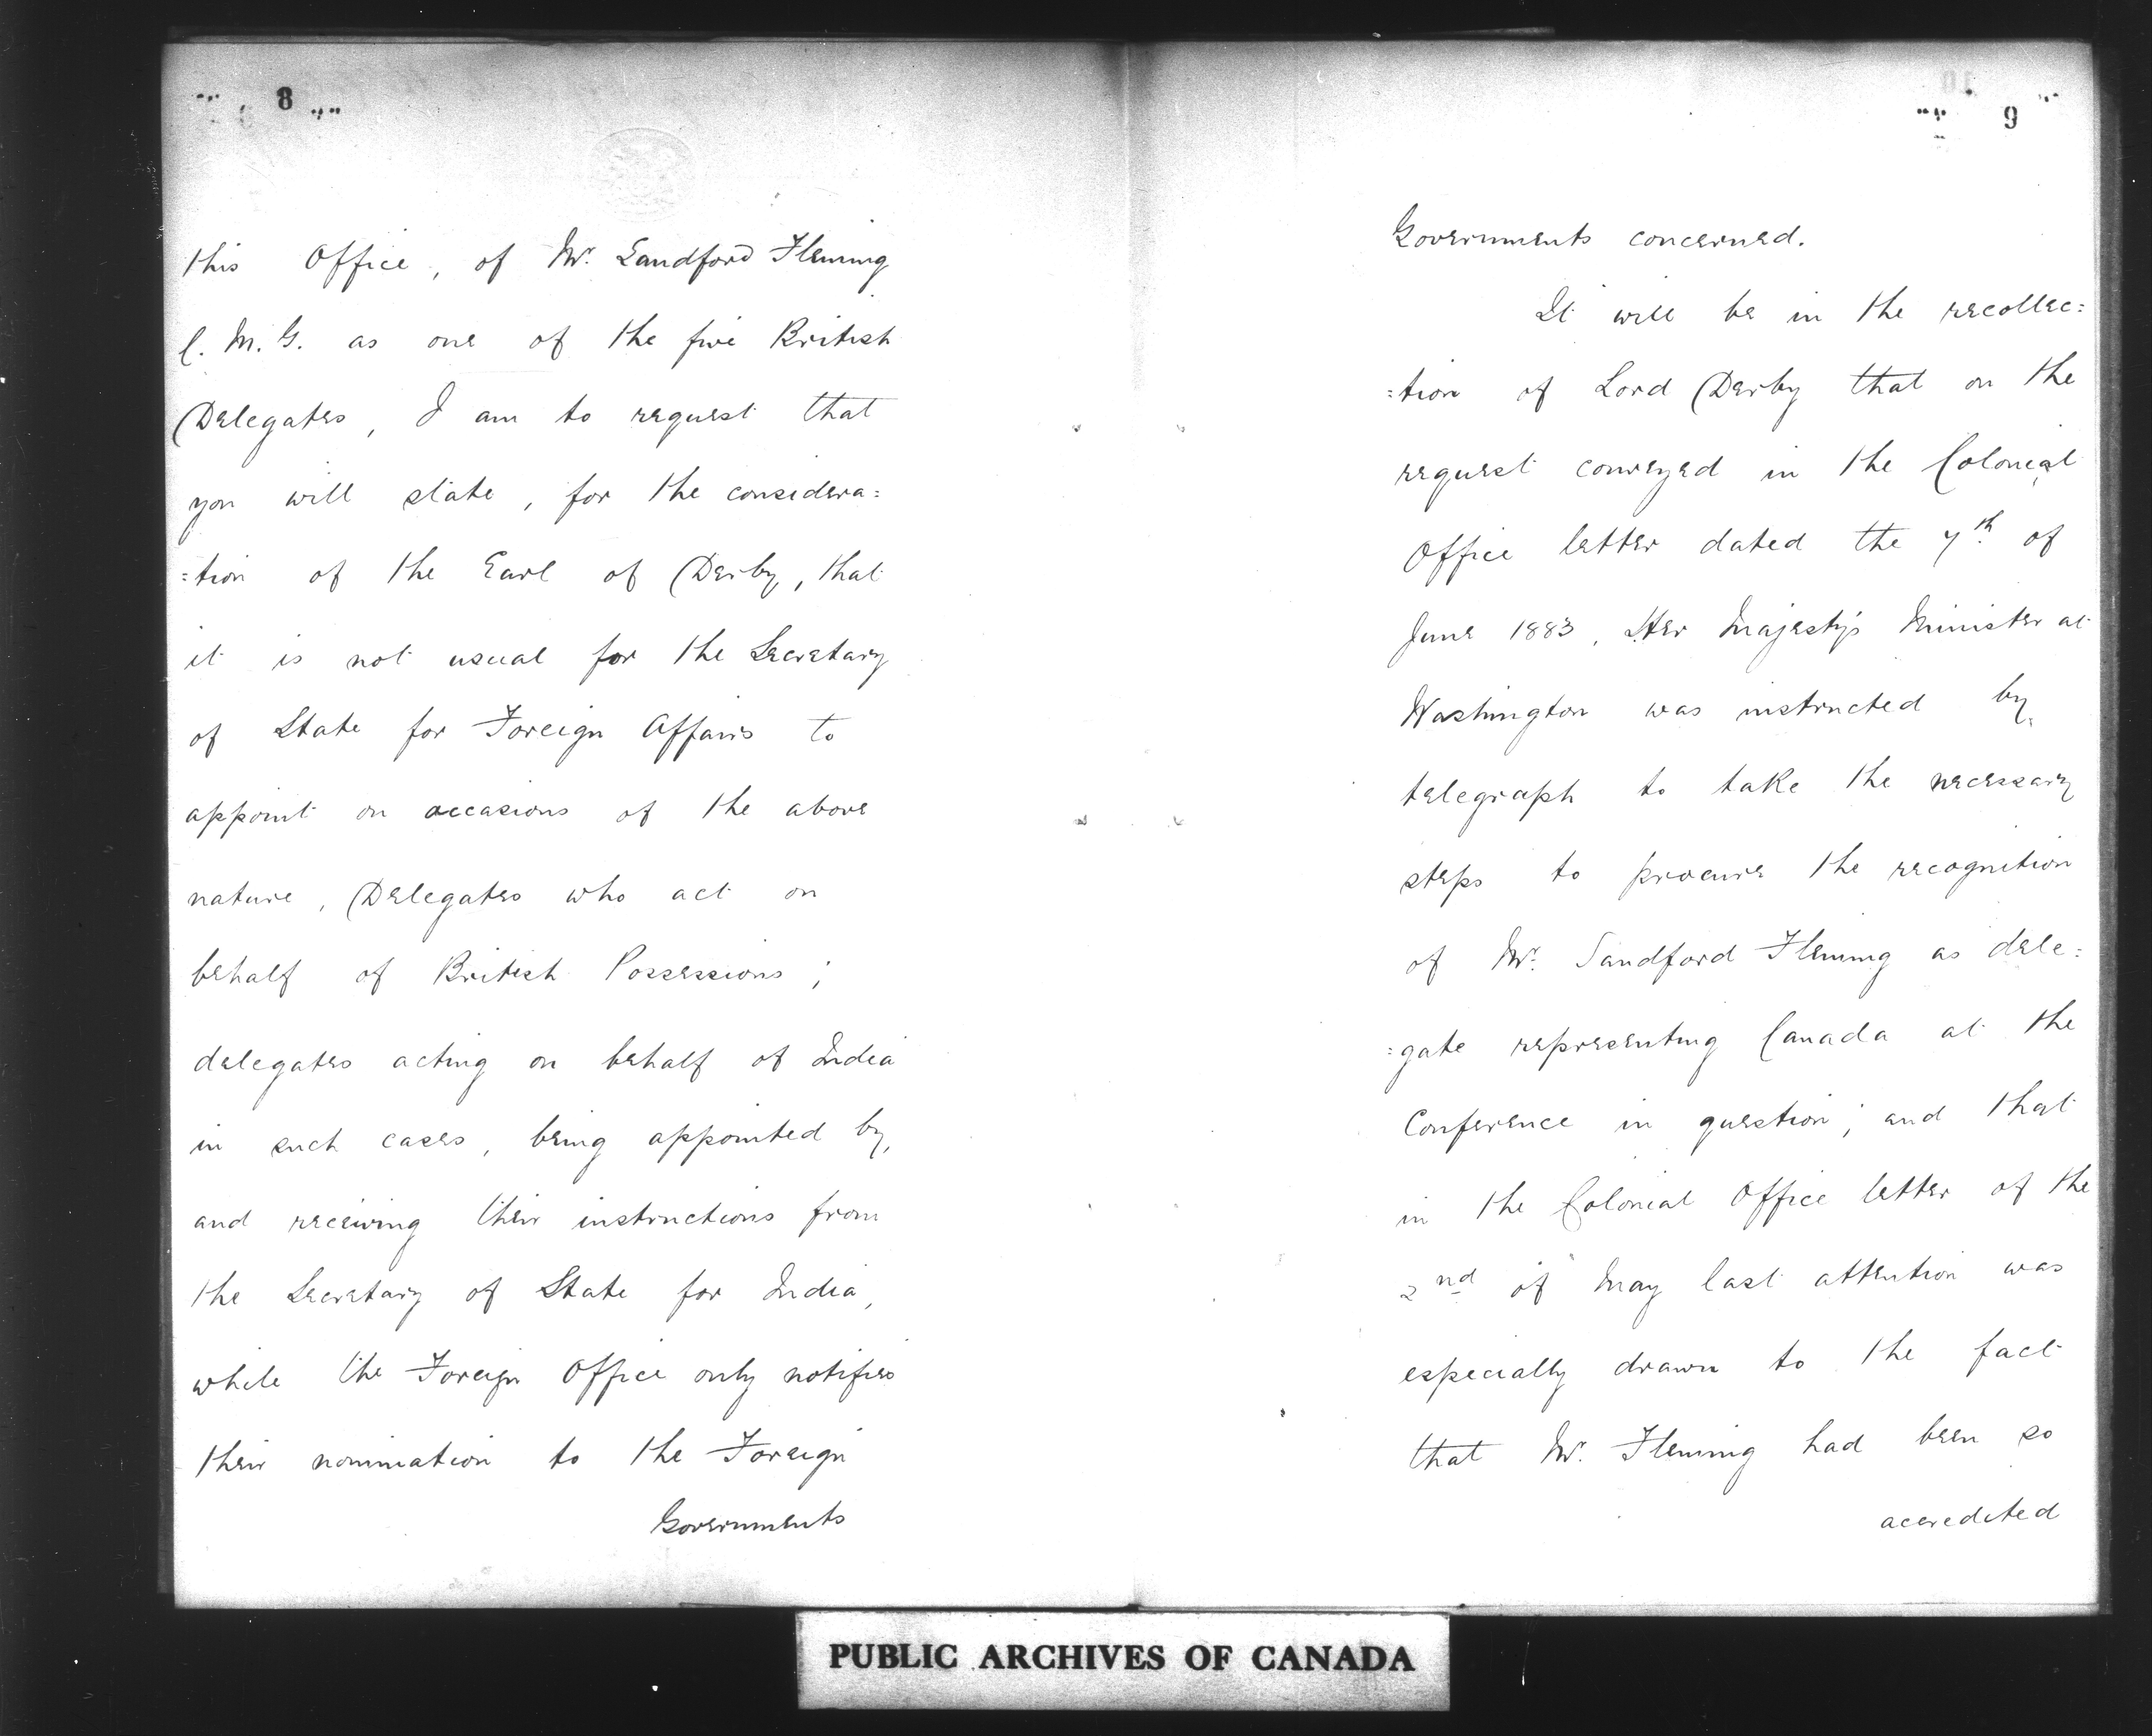 8
this Office, of Mr. Sandford Fleming
C. M. G. as one of the five British
Delegates, I am to request that
you will state, for the considera=
=tion of the Earl of Derby, that
it is not usual for the Secretary
of State for Foreign Affairs to
appoint on occasions of the above
nature, Delegates who act on
behalf of British Possessions;
delegates acting on behalf of India
in such cases, being appointed by,
and receiving their instructions from
the Secretary of State for India,
while the Foreign Office only notifies
their nomination to the Foreign
Governments
9
Governments concerned.
It will be in the recollec=
=tion of Lord Derby that on the
request conveyed in the Colonial
Office letter dated the 7th of
June 1883, Her Majesty's Minister at
Washington was instructed by
telegraph to take the necessary
steps to procure the recognition
of Mr. Sandford Fleming as dele=
=gate representing Canada at the
Conference in question; and that
in the Colonial Office letter of the
2nd of May last attention was
especially drawn to the fact
that Mr. Fleming had been so
accredited
PUBLIC ARCHIVES OF CANADA